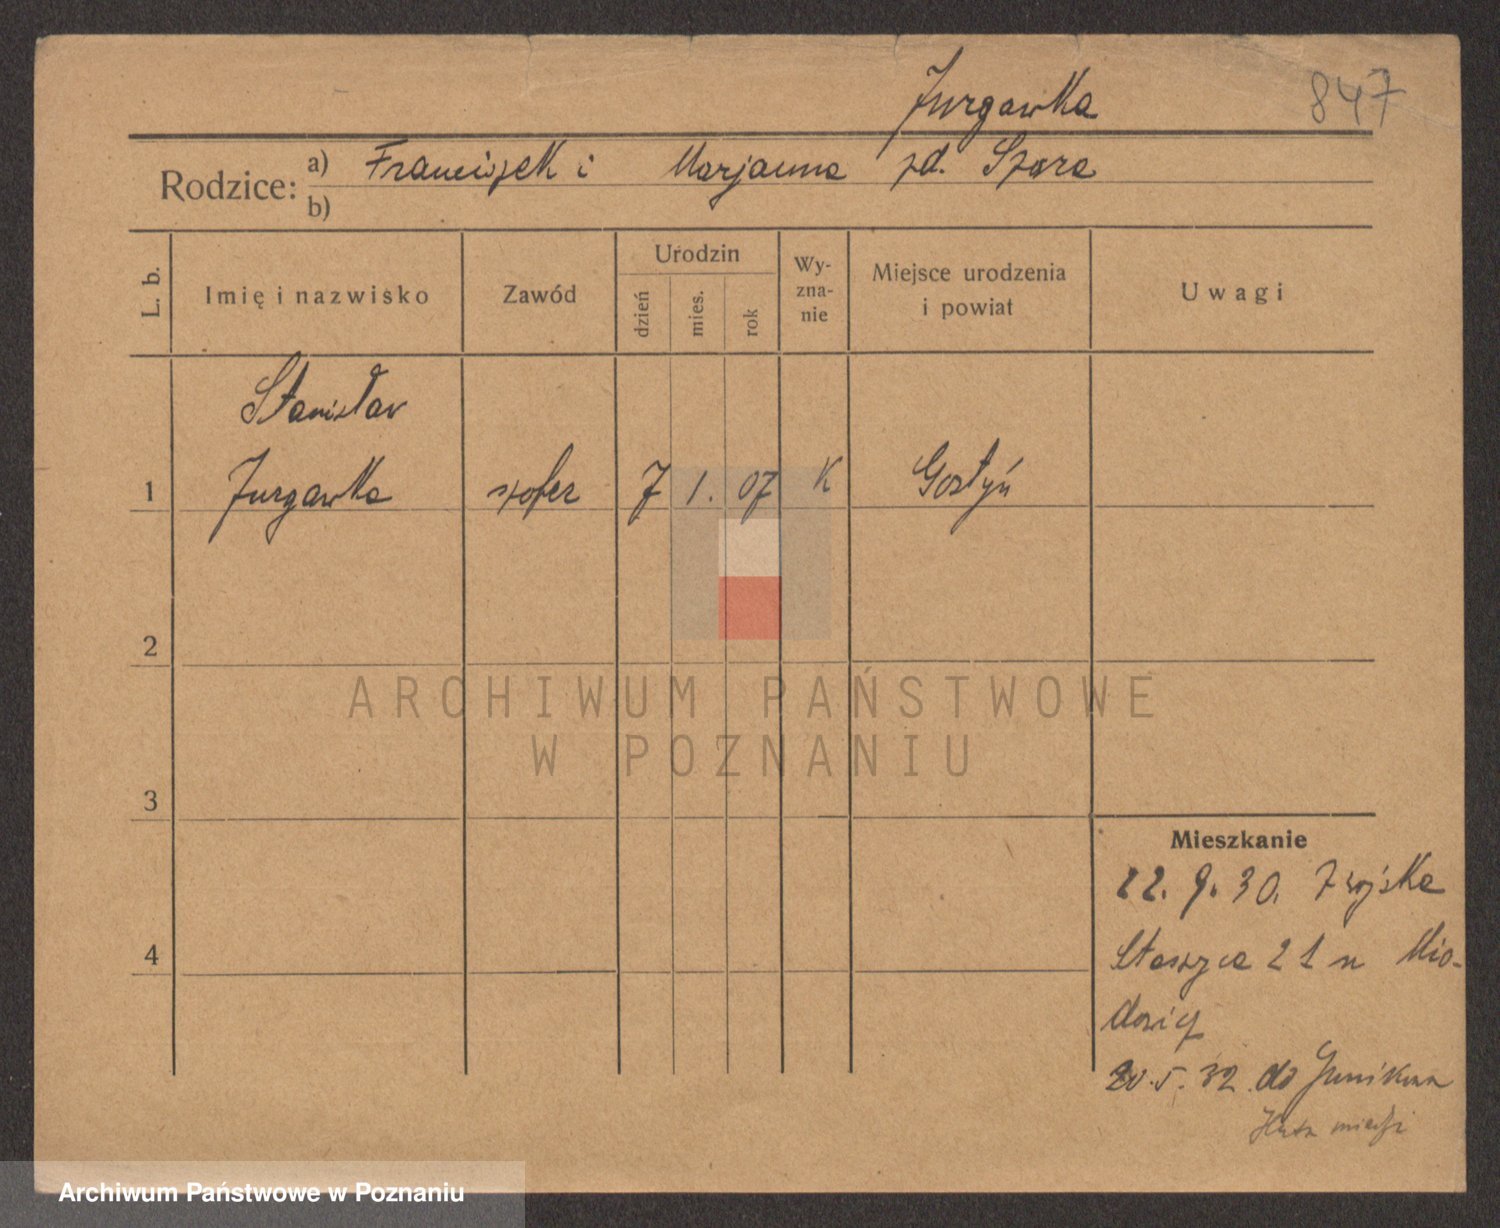 Jurgawka 847
Rodzice: a) Franciszek i Marjanna zd. Szara
b)
L. b. Imię i nazwisko Zawód Urodzin dzień mies. rok Wyznanie Miejsce urodzenia i powiat Uwagi
Stanisław
1 Jurgawka szofer 7 1. 07 K Gostyń
2
ARCHIWUM PAŃSTWOWE
W POZNANIU
3
Mieszkanie
22. 9. 30. z wojska
4 Staszyca 21 n
20. 5. 32. do Junikowa
Archiwum Państwowe w Poznaniu